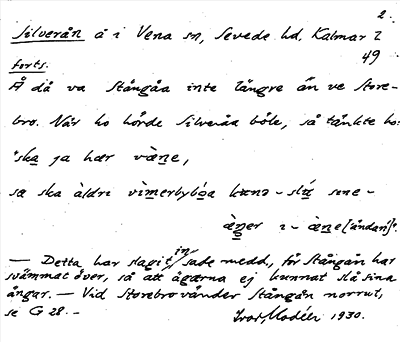 2.
Silverån å i Vena sn, Sevede hd, Kalmar l
49
forts.
Å då va Stångåa inte längre än ve Store-
bro. När ho hörde Silveråa böle, så tänkte ho:
"ska ja hær væne,
sa ska àldri vimerbybóa kunə - slá sine -
æ̀ŋer i - æ̀ne [åndan]".
— Detta har slagit in, sade medd., för Stångån har
svämmat över, så att ägarna ej kunnat slå sina
ängar. — Vid Storebro vänder Stångån norrut,
se G 28. -
Ivar Modéer 1930.